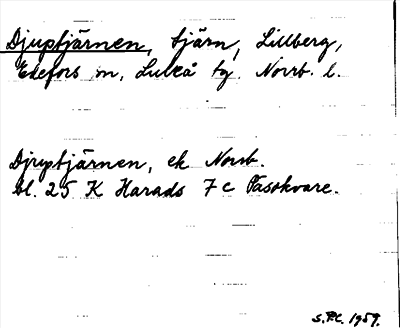 Djuptjärnen, tjärn, Lillberg,
Edefors sn, Luleå tg. Norrb. l.
Djuptjärnen, ek Norrb.
bl. 25 K Harads 7 c Passkvare.
S.F.C. 1959.